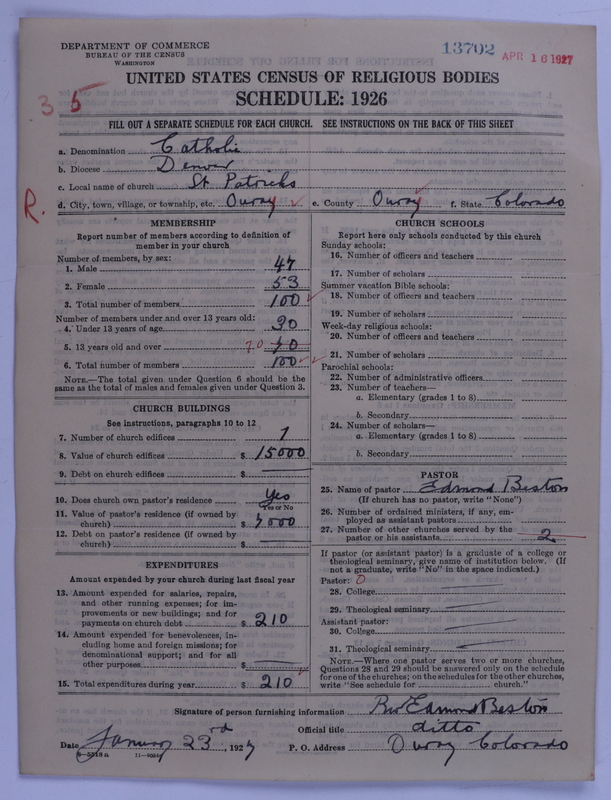 DEPARTMENT OF COMMERCE
BUREAU OF THE CENSUS
WASHINGTON
13702
APR 16 1927
UNITED STATES CENSUS OF RELIGIOUS BODIES
SCHEDULE: 1926
3 5
FILL OUT A SEPARATE SCHEDULE FOR EACH CHURCH. SEE INSTRUCTIONS ON THE BACK OF THIS SHEET
a. Denomination Catholic
b. Diocese Denver
c. Local name of church St Patricks
d. City, town, village, or township, etc. Ouray e. County Ouray f. State Colorado
R.
MEMBERSHIP
Report number of members according to definition of
member in your church
Number of members, by sex:
1. Male 47
2. Female 53
3. Total number of members 100
Number of members under and over 13 years old:
4. Under 13 years of age 30
5. 13 years old and over 70 70
6. Total number of members 100
NOTE.—The total given under Question 6 should be the
same as the total of males and females given under Question 3.
CHURCH BUILDINGS
See instructions, paragraphs 10 to 12
7. Number of church edifices 1
8. Value of church edifices $ 15000
9. Debt on church edifices $
10. Does church own pastor's residence Yes
Yes or No
11. Value of pastor's residence (if owned by
church) $ 5000
12. Debt on pastor's residence (if owned by
church) $
EXPENDITURES
Amount expended by your church during last fiscal year
13. Amount expended for salaries, repairs,
and other running expenses; for im-
provements or new buildings; and for
payments on church debt $ 210
14. Amount expended for benevolences, in-
cluding home and foreign missions; for
denominational support; and for all
other purposes $
15. Total expenditures during year $ 210
CHURCH SCHOOLS
Report here only schools conducted by this church
Sunday schools:
16. Number of officers and teachers
17. Number of scholars
Summer vacation Bible schools:
18. Number of officers and teachers
19. Number of scholars
Week-day religious schools:
20. Number of officers and teachers
21. Number of scholars
Parochial schools:
22. Number of administrative officers
23. Number of teachers—
a. Elementary (grades 1 to 8)
b. Secondary
24. Number of scholars—
a. Elementary (grades 1 to 8)
b. Secondary
PASTOR
25. Name of pastor Edmond Beston
(If church has no pastor, write "None")
26. Number of ordained ministers, if any, em-
ployed as assistant pastors
27. Number of other churches served by the
pastor or his assistants 2
If pastor (or assistant pastor) is a graduate of a college or
theological seminary, give name of institution below. (If
not a graduate, write "No" in the space indicated.)
Pastor: O
28. College
29. Theological seminary
Assistant pastor:
30. College
31. Theological seminary
NOTE.—Where one pastor serves two or more churches,
Questions 28 and 29 should be answered only on the schedule
for one of the churches; on the schedules for the other churches,
write "See schedule for church."
Signature of person furnishing information Rev Edmond Beston
Official title ditto
Date January 23rd, 1927 P. O. Address Ouray Colorado